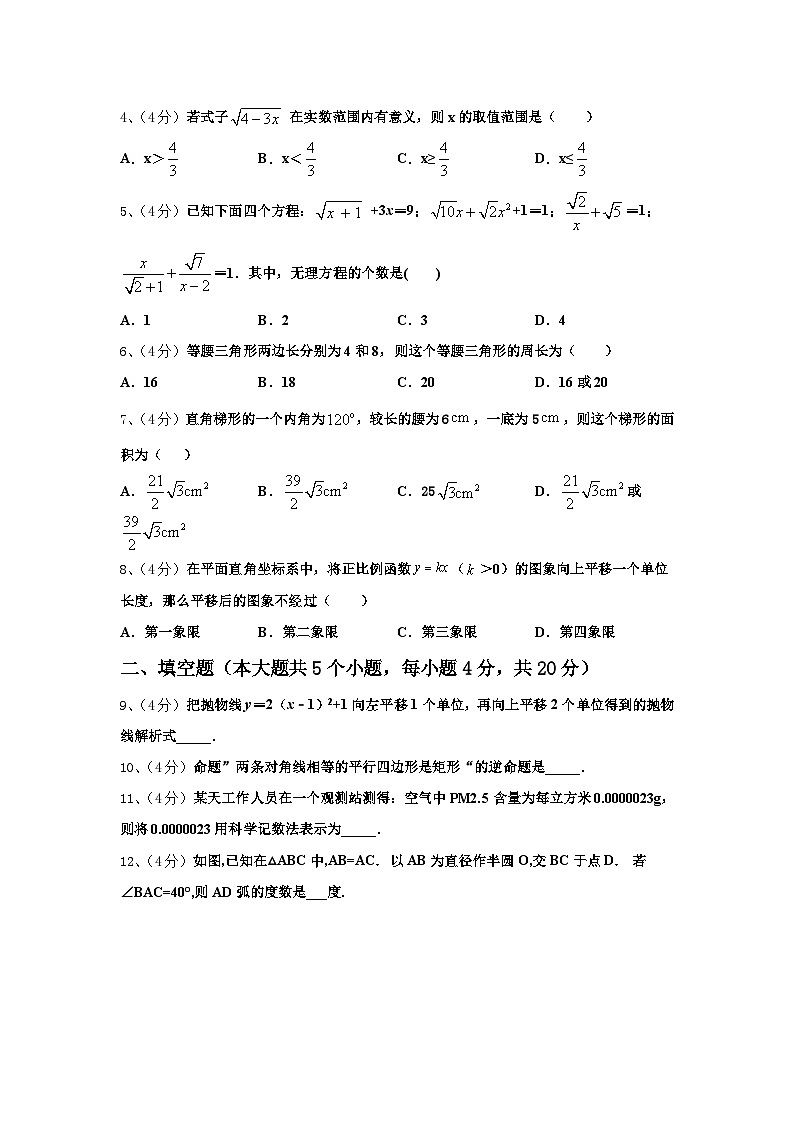 4、(4分) 若式子√(4−3x) 在实数范围内有意义，则 x 的取值范围是（  ）
A．x＞4/3 B．x＜4/3 C．x≥4/3 D．x≤4/3
5、(4分) 已知下面四个方程：√(x+1) +3x＝9；√10x+√2x²+1＝1；√2/x+√5＝1；
x/(√2+1)+√7/(x−2)＝1．其中，无理方程的个数是(  )
A．1 B．2 C．3 D．4
6、(4分) 等腰三角形两边长分别为 4 和 8，则这个等腰三角形的周长为（  ）
A．16 B．18 C．20 D．16 或 20
7、(4分) 直角梯形的一个内角为120°，较长的腰为 6cm，一底为 5cm，则这个梯形的面
积为（  ）
A．21/2√3cm² B．39/2√3cm² C．25√3cm² D．21/2√3cm²或
39/2√3cm²
8、(4分) 在平面直角坐标系中，将正比例函数y=kx（k >0）的图象向上平移一个单位
长度，那么平移后的图象不经过（  ）
A．第一象限 B．第二象限 C．第三象限 D．第四象限
二、填空题（本大题共 5 个小题，每小题 4 分，共 20 分）
9、(4分) 把抛物线 y＝2（x﹣1)²+1 向左平移 1 个单位，再向上平移 2 个单位得到的抛物
线解析式_____．
10、(4分) 命题”两条对角线相等的平行四边形是矩形“的逆命题是_____．
11、(4分) 某天工作人员在一个观测站测得：空气中 PM2.5 含量为每立方米 0.0000023g，
则将 0.0000023 用科学记数法表示为_____．
12、(4分) 如图,已知在△ABC 中,AB=AC． 以 AB 为直径作半圆 O,交 BC 于点 D． 若
∠BAC=40°,则 AD 弧的度数是___度.